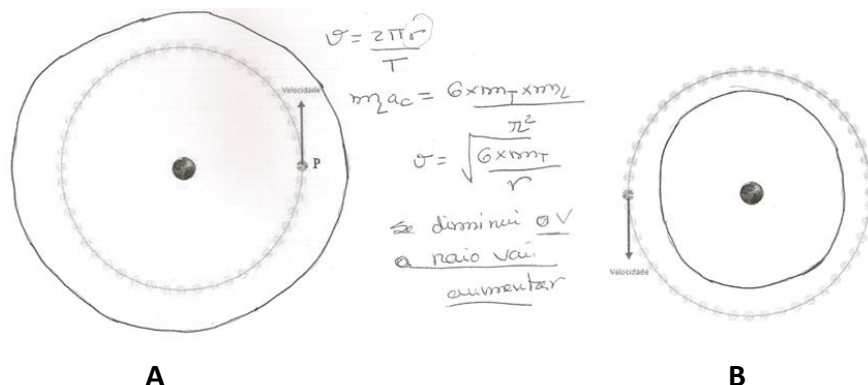 v = 2πr
T
Velocidade
P
m_L a_c = G × m_T × m_L
r²
v = √ G × m_T
r
se diminui o V
o raio vai
aumentar
Velocidade
A
B